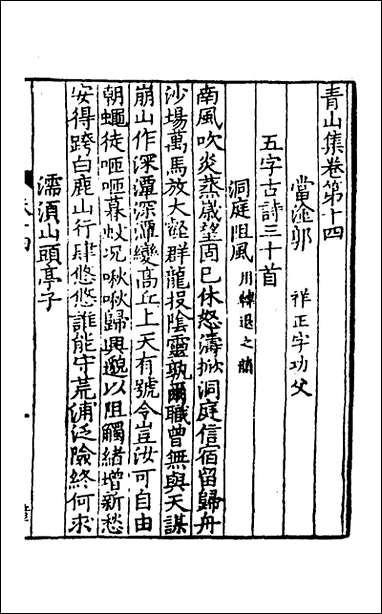 青山集卷第十四
當塗郭 祥正字功父
五字古詩三十首
洞庭阻風 用韓退之韻
南風吹炎蒸歲望固已休怒濤掀洞庭信宿留歸舟
沙場萬馬放大壑群龍投陰靈孰爾職曾無與天謀
崩山作深潭深潭變高丘上天有號令豈汝可自由
朝蠅徒咂咂暮蚊况啾啾歸興邈以阻觸緒增新愁
安得跨白鹿山行肆悠悠誰能守荒浦泛險終何求
濡須山頭亭子